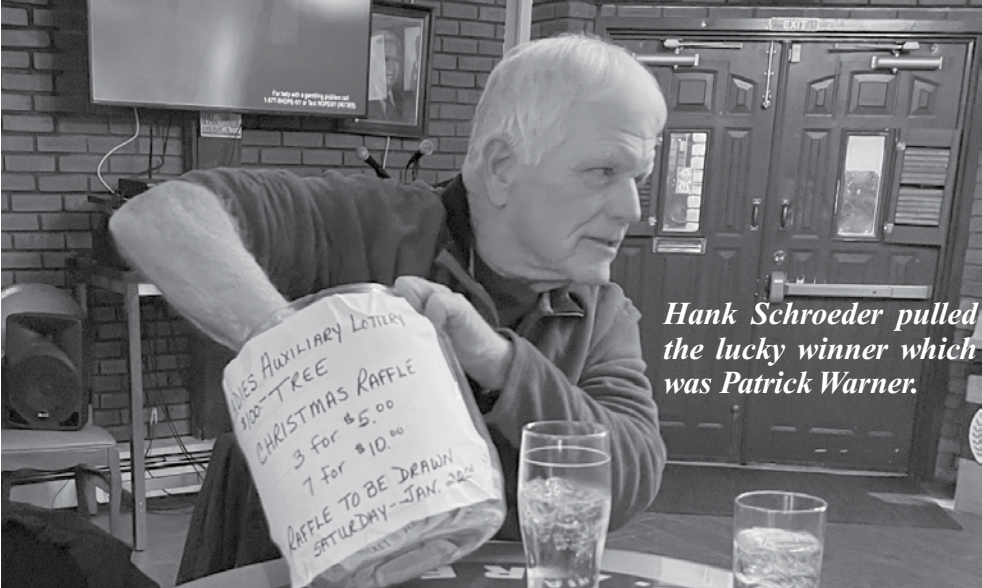 EXIT
For help with a gambling problem call
1-877-8HOPE-NY or Text HOPENY (467369)
Hank Schroeder pulled
the lucky winner which
was Patrick Warner.
ADIES AUXILIARY LOTTERY
$100-TREE
CHRISTMAS RAFFLE
3 for $5.00
7 for $10.00
RAFFLE TO BE DRAWN
SATURDAY--JAN.